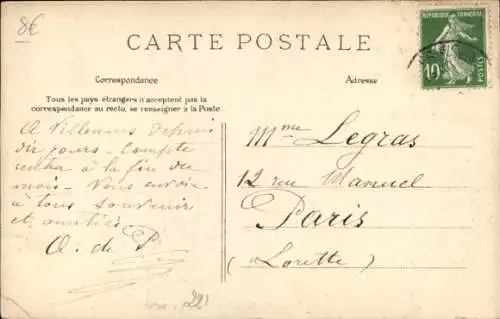 8€
CARTE POSTALE
Correspondance
Tous les pays étrangers n'acceptent pas la
correspondance au recto, se renseigner à la Poste
A Villennes depuis
dix jours - Compte
rentrer à la fin du
mois - Vous envoie
à tous souvenir
et amitiés
A. de P
Adresse
RÉPUBLIQUE FRANÇAISE
10
POSTES
Mme Legras
12 rue Manuel
Paris
(Lorette)
22